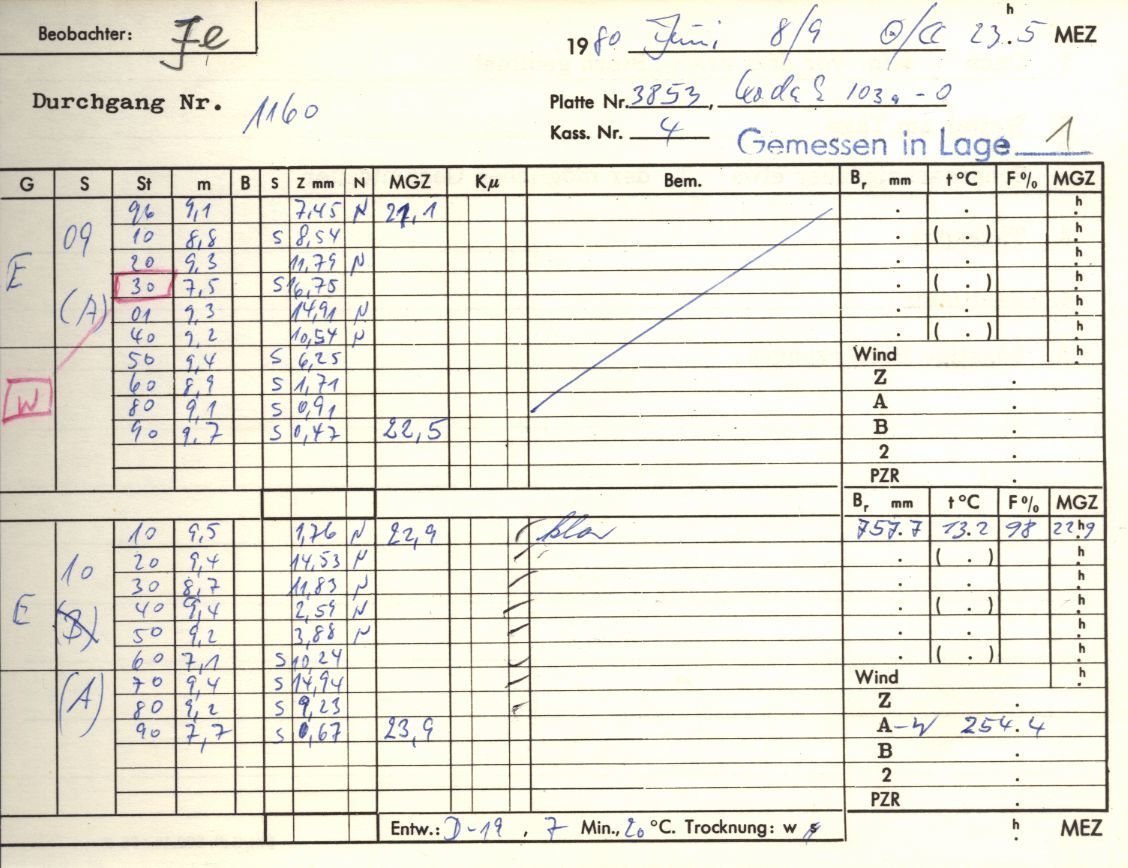 Beobachter: Je
h
1980 Juni 8/9 23.5 MEZ
Durchgang Nr. 1160
Platte Nr. 3853, 103a-O
Kass. Nr. 4 Gemessen in Lage 1
G S St m B S Z mm N MGZ Kμ Bem. Br mm t °C F % MGZ
96 9,1 7,45 N 21,1 . . h
E 09 10 8,8 S 8,54 . ( . )
20 9,3 11,79 N . . h
30 7,5 S 16,75 . ( . )
(A) 01 9,3 14,91 N . . h
40 9,2 10,54 N . ( . )
50 9,4 S 6,25 Wind h
W 60 8,9 S 1,71 Z .
80 9,1 S 0,91 A .
90 9,7 S 0,47 22,5 B .
2 .
PZR .
Br mm t °C F % MGZ
10 9,5 1,76 N 22,9 klar 757.7 13.2 98 22h9
20 9,4 14,53 N . ( . ) h
10 30 8,7 11,83 N . . h
E (B) 40 9,4 2,59 N . ( . ) h
50 9,2 3,88 N . . h
60 7,1 S 10,24 . ( . )
(A) 70 9,4 S 14,94 Wind h
80 9,2 S 9,23 Z .
90 7,7 S 0,67 23,9 A-W 254.4
B .
2 .
PZR .
Entw.: D-19, 7 Min., 20 °C. Trocknung: w s . h MEZ